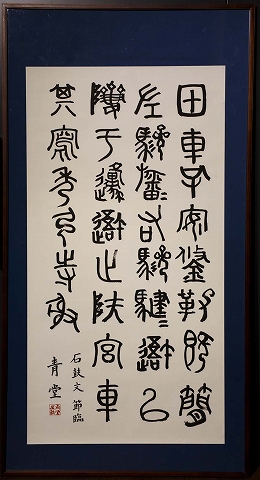 田車孔安鋚勒既簡
左驂旛右驂騝〻吾以
隮于邍吾止陝宮車
其寫秀弓寺射
石鼓文 節臨
青堂